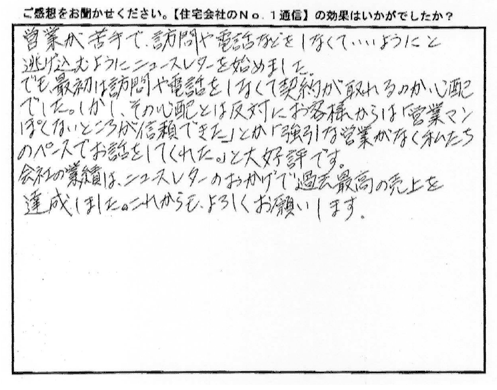 ご感想をお聞かせください。【住宅会社のNo.1通信】の効果はいかがでしたか?
営業が苦手で、訪問や電話などをしなくていいようにと
逃げ込むようにニュースレターを始めました。
でも、最初は訪問や電話をしなくて契約が取れるのか心配
でした。しかし、その心配とは反対にお客様からは「営業マン
ぽくないところが信頼できた」とか「強引な営業がなく私たち
のペースでお話をしてくれた。」と大好評です。
会社の業績は、ニュースレターのおかげで過去最高の売上を
達成しました。これからも、よろしくお願いします。